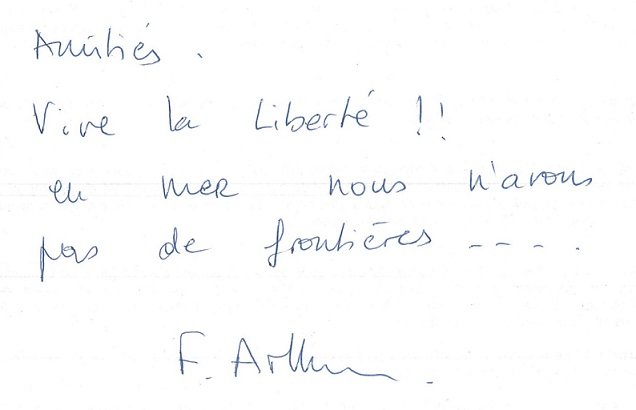 Amitiés.
Vive la Liberté !!
en mer nous n'avons
pas de frontières ----.
F. Arthu